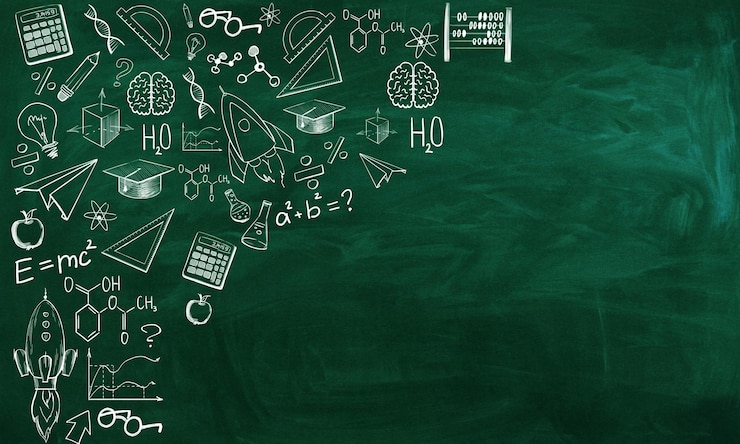 O OH
O CH₃
O
?
H₂O
H₂O
O OH
O CH₃
O
a²+b²=?
E=mc²
O OH
O CH₃
O
?